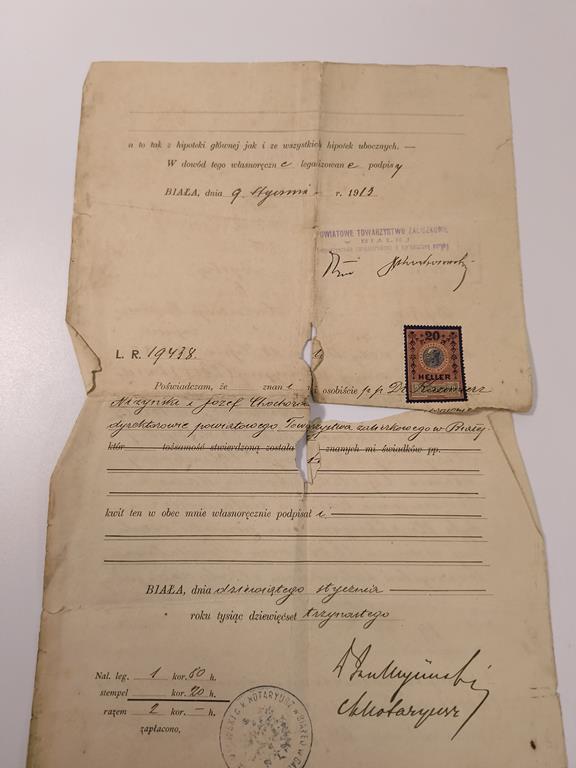 a to tak z hipoteki głównej jak i ze wszystkich hipotek ubocznych. —
W dowód tego własnoręczne legalizowane podpisy
BIAŁA, dnia 9 Stycznia r. 1913
POWIATOWE TOWARZYSTWO ZALICZKOWE
w BIAŁEJ
20
HELLER
L. R. 19438.
Poświadczam, że znani mi osobiście p. p. Dr. Kazimierz
Niżyński i Józef
dyrektorowie powiatowego Towarzystwa zaliczkowego w Białej
któr tożsamość stwierdzoną została znanych mi świadków pp.
kwit ten w obec mnie własnoręcznie podpisali
BIAŁA, dnia dziewiątego stycznia
roku tysiąc dziewięćset trzynastego
Nal. leg. 1 kor. 80 h.
stempel kor. 20 h.
razem 2 kor. — h.
zapłacono.
C. K. NOTARYUSZ w BIAŁEJ
Notaryusz